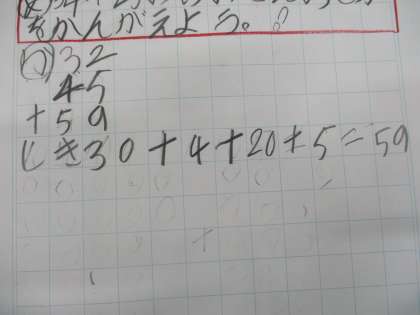 をかんがえよう。
ひ32
45
+59
しき30+4+20+5=59